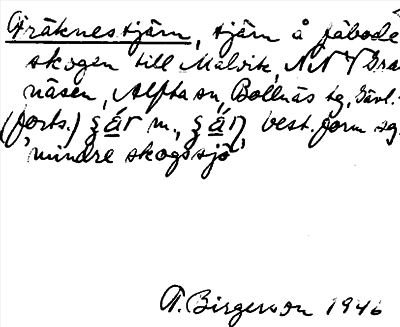 Gräknestjärn, tjärn å fäbode
skogen till Malvik, NNV Gra
näsen, Alfta sn, Bollnäs tg, Gävl.
(forts.) m., best. form sg.
'mindre skogssjö'
T. Birgerson 1946